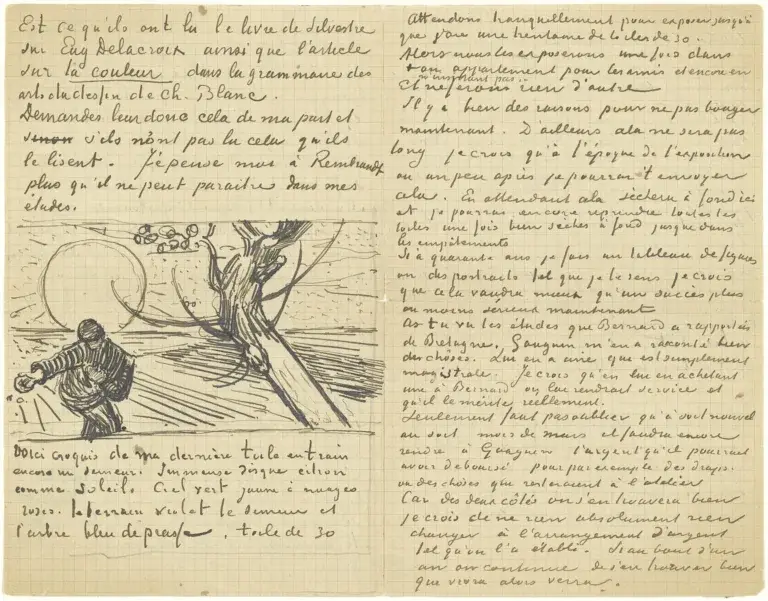 Est ce qu'ils ont lu le livre de Silvestre
sur Eug Delacroix ainsi que l'article
sur la couleur dans la grammaire des
arts du dessin de Ch. Blanc.
Demandes leur donc cela de ma part et
sinon s'ils n'ont pas lu cela qu'ils
le lisent. J'epense moi à Rembrandt
plus qu'il ne peut paraitre dans mes
études.
Voici croquis de ma dernière toile en train
encore un semeur. Immense disque citron
comme soleil. Ciel vert jaune à nuages
roses. le terrain violet le semeur et
l'arbre bleu de prusse. toile de 30
Attendons tranquillement pour exposer jusqu'à
que j'aie une trentaine de toiles de 30.
Alors nous les exposerons une fois dans
ton appartement pour les amis et encore en
n'insistant pas
Et ne ferons rien d'autre
Il y a bien des raisons pour ne pas bouger
maintenant. D'ailleurs cela ne sera pas
long je crois qu'à l'époque de l'exposition
ou un peu après je pourrai t'envoyer
cela. En attendant cela sèchera à fond ici
et je pourrai encore reprendre toutes les
toiles une fois bien sèches à fond jusque dans
les empâtements
Si à quarante ans je fais un tableau de figures
ou des portraits tel que je le sens je crois
que cela vaudra mieux qu'un succès plus
ou moins sérieux maintenant
As tu vu les études que Bernard a rapportées
de Bretagne, Gauguin m'en a raconté bien
des choses. Lui en a une que est simplement
magistrale. Je crois qu'en lui en achetant
une à Bernard on lui rendrait service et
qu'il le mérite réellement.
Seulement faut pas oublier qu'à soit nouvel
an soit mois de mars il faudra encore
rendre à Gauguin l'argent qu'il pourrait
avoir déboursé pour par exemple des draps.
ou des choses que resteraient à l'atelier
Car des deux côtés on s'en trouvera bien
je crois de ne rien absolument rien
changer à l'arrangement d'argent
tel qu'on l'a établi. Si au bout d'un
an on continue de s'en trouver bien
que vivra alors verra.